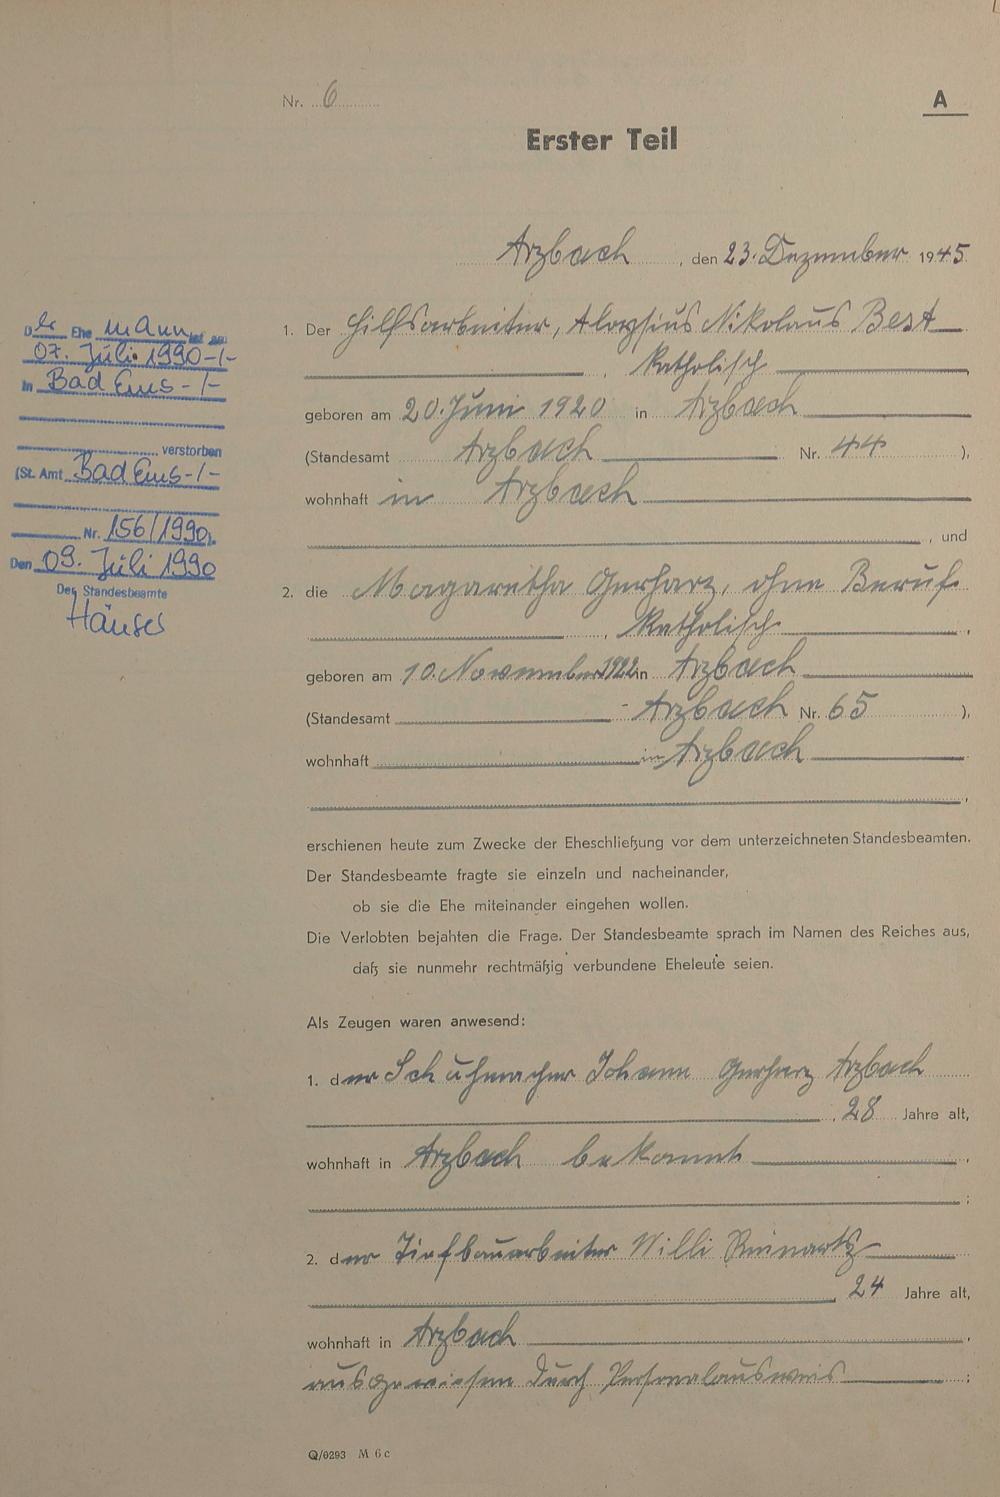 Nr. 6
A
Erster Teil
Arzbach, den 23. Dezember 1945
1. Der Hilfsarbeiter, Aloysius Nikolaus Best
, Katholisch,
geboren am 20. Juni 1920 in Arzbach
(Standesamt Arzbach Nr. 44),
wohnhaft in Arzbach
, und
2. die Magaretha Gerharz, ohne Beruf
, Katholisch,
geboren am 10. November 1922 in Arzbach
(Standesamt - Arzbach Nr. 65),
wohnhaft in Arzbach
,
erschienen heute zum Zwecke der Eheschließung vor dem unterzeichneten Standesbeamten.
Der Standesbeamte fragte sie einzeln und nacheinander,
ob sie die Ehe miteinander eingehen wollen.
Die Verlobten bejahten die Frage. Der Standesbeamte sprach im Namen des Reiches aus,
daß sie nunmehr rechtmäßig verbundene Eheleute seien.
Als Zeugen waren anwesend:
1. der Schuhmacher Johann Gerharz Arzbach
, 28 Jahre alt,
wohnhaft in Arzbach bekannt,
;
2. der Tiefbauarbeiter Willi Reinartz
, 24 Jahre alt,
wohnhaft in Arzbach,
ausgewiesen durch Personalausweis;
Q/0293 M 6 c
Der Ehemann ist am
07. Juli 1990-/-
in Bad Ems-/-
verstorben
(St. Amt Bad Ems-/-
Nr. 156/1990).
Den 09. Juli 1990
Der Standesbeamte
Häuser